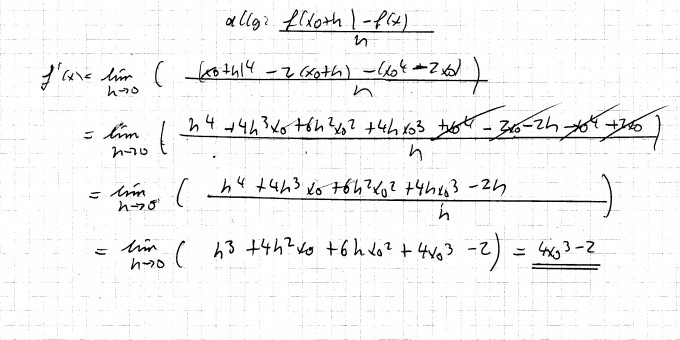 allg: f(x₀+h) - f(x) / h
f'(x) = lim h→0 ( (x₀+h)⁴ - 2(x₀+h) - (x₀⁴ - 2x₀) / h )
= lim h→0 ( h⁴ + 4h³x₀ + 6h²x₀² + 4hx₀³ + x₀⁴ - 2x₀ - 2h - x₀⁴ + 2x₀ / h )
= lim h→0 ( h⁴ + 4h³x₀ + 6h²x₀² + 4hx₀³ - 2h / h )
= lim h→0 ( h³ + 4h²x₀ + 6hx₀² + 4x₀³ - 2 ) = 4x₀³ - 2